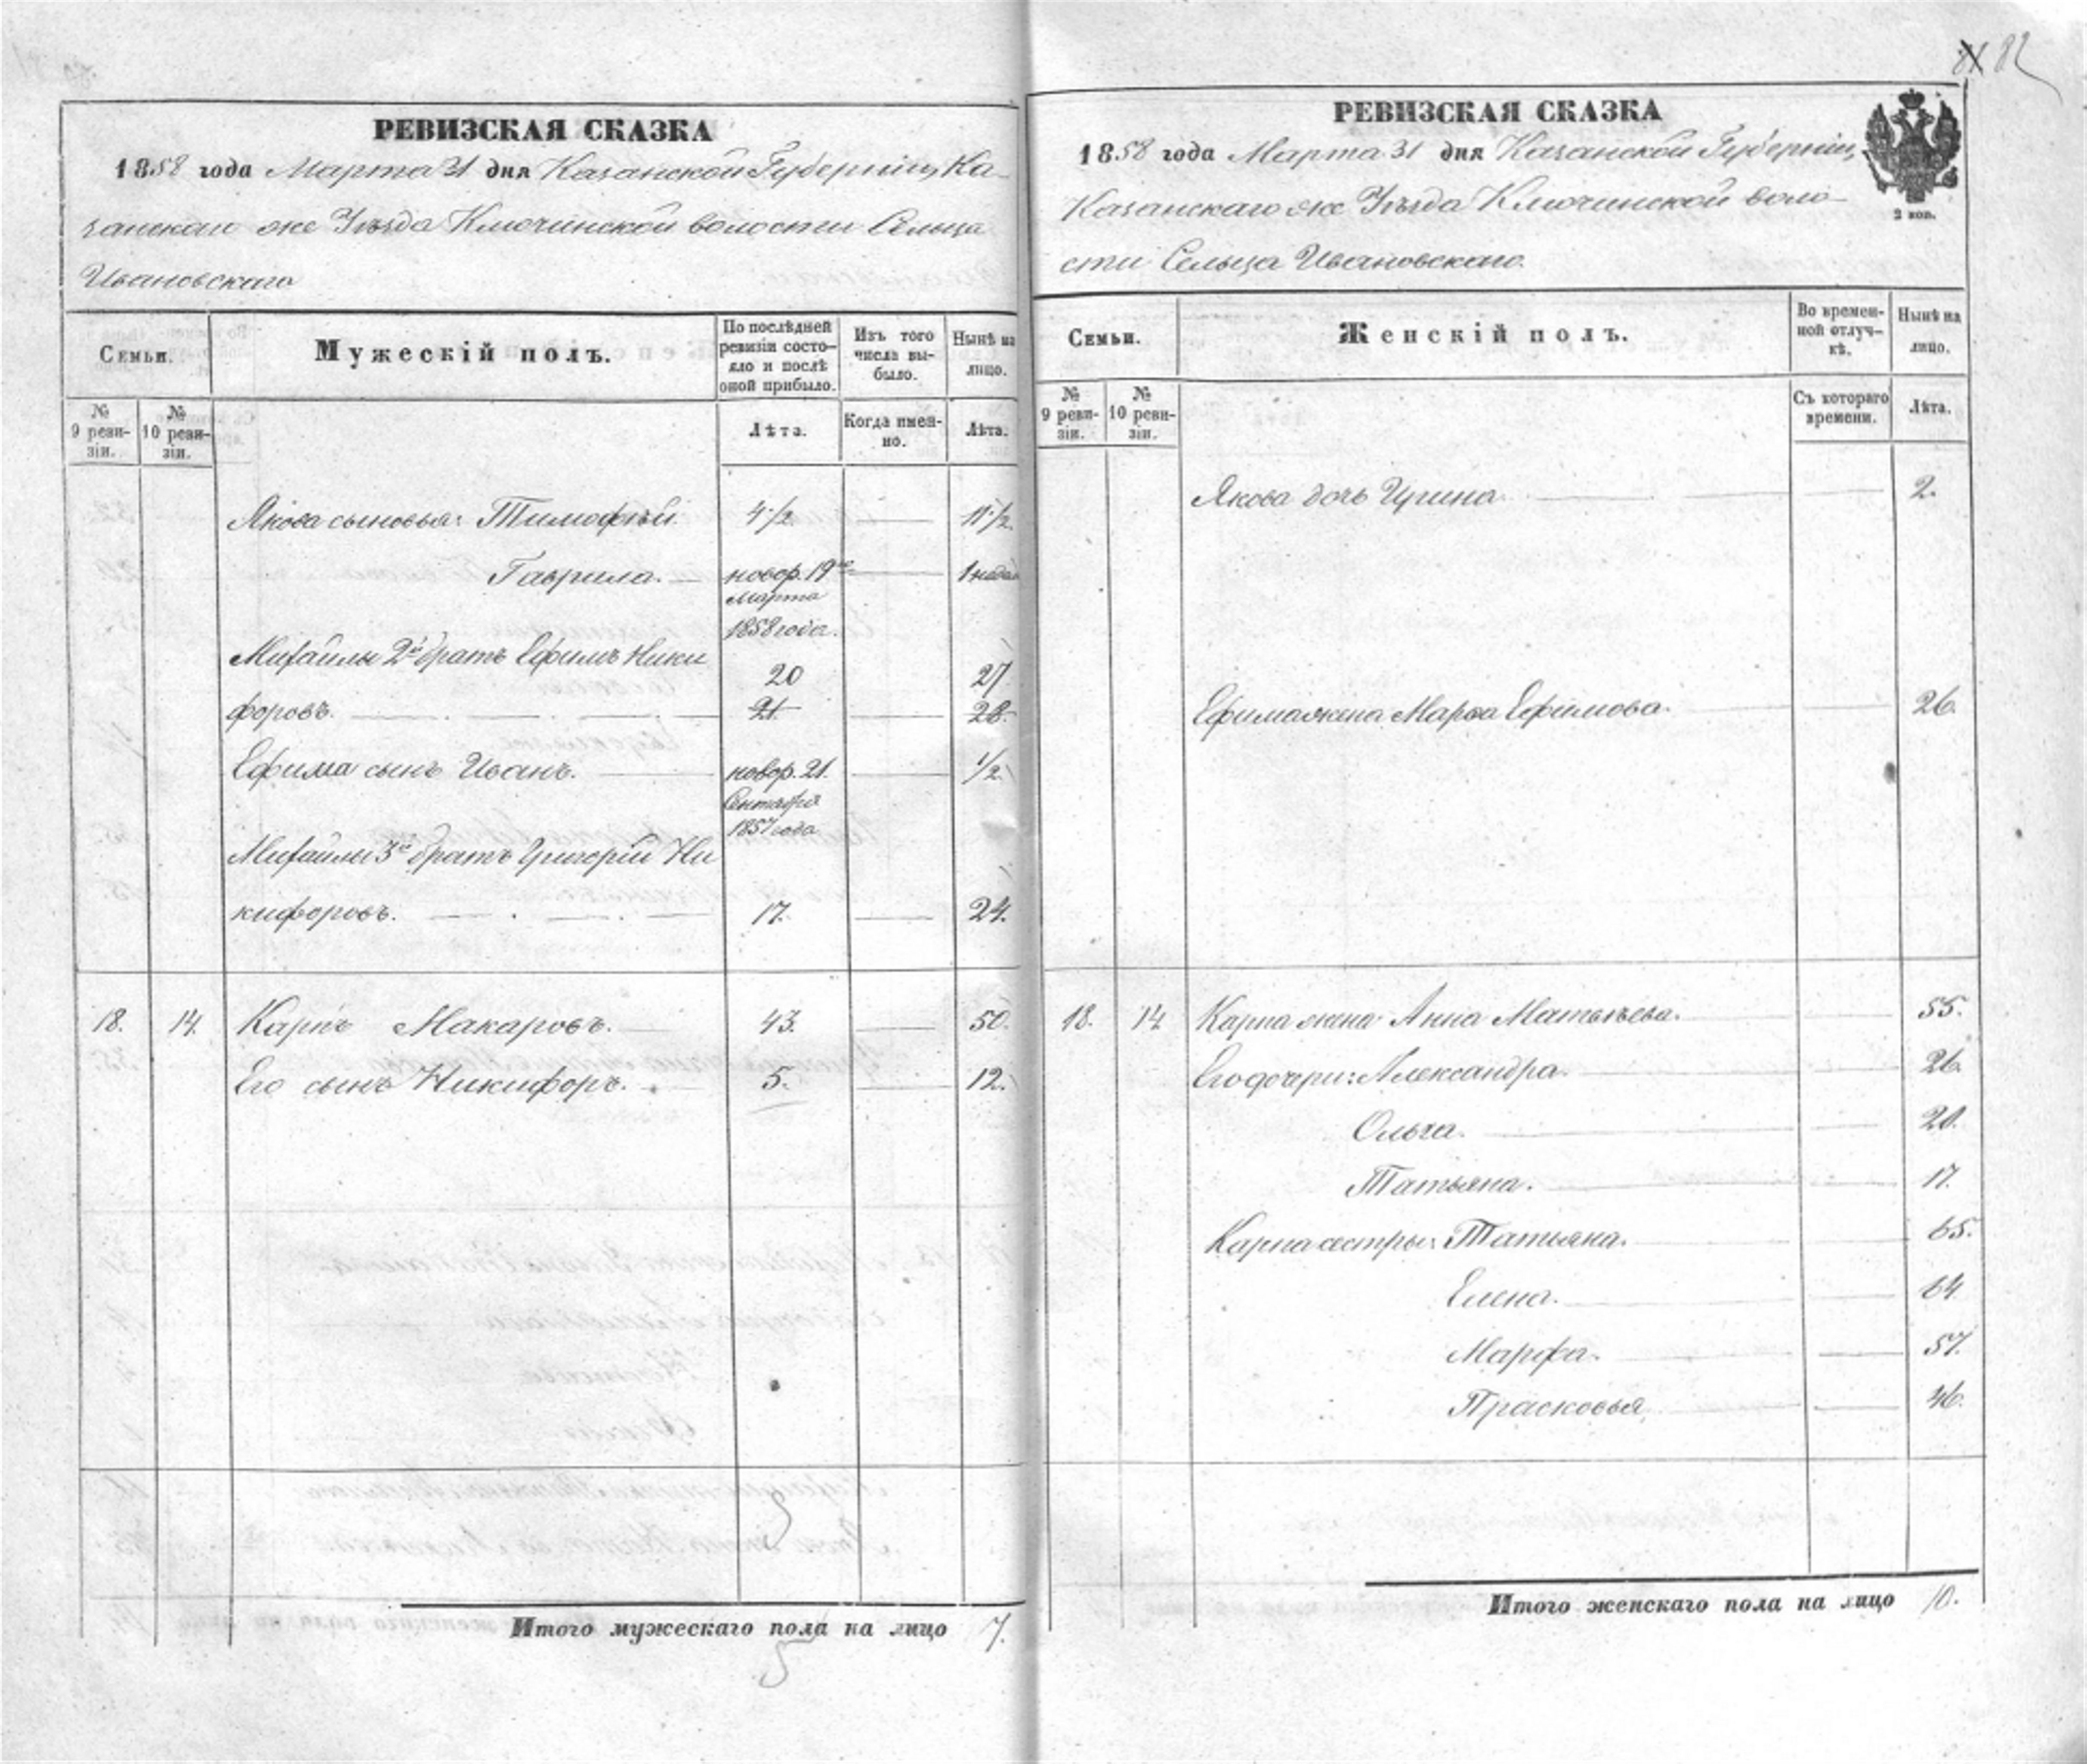 81 82
РЕВИЗСКАЯ СКАЗКА
1858 года Марта 31 дня Казанской Губернiи, Ка-
занскаго же Уѣзда Ключинской волости Сельца
Ивановскаго
Семьи.
Мужескiй полъ.
По послѣдней ревизiи состо-
яло и послѣ оной прибыло.
Изъ того числа вы-
было.
Нынѣ на лицо.
№ 9 реви-
зiи.
№ 10 реви-
зiи.
Лѣта.
Когда имен-
но.
Лѣта.
Якова сыновья: Тимофѣй. 4 1/2 11 1/2.
Гаврила. новор. 19го 1 недѣл
Марта
1858 года.
Михайлы 2й братъ Ефимъ Ники
20 27
форовъ. 21 28.
Ефима сынъ Иванъ. новор. 21. 1/2.
Сентября
1857 года
Михайлы 3й братъ Григорiй Ни
кифоровъ. 17. 24.
18. 14. Карпъ Макаровъ. 43. 50.
Его сынъ Никифоръ. 5. 12.
Итого мужескаго пола на лицо 7.
5
РЕВИЗСКАЯ СКАЗКА
1858 года Марта 31 дня Казанской Губернiи,
Казанскаго же Уѣзда Ключинской воло-
сти Сельца Ивановскаго.
2 коп.
Семьи.
Женскiй полъ.
Во времен-
ной отлуч-
кѣ.
Нынѣ на лицо.
№ 9 реви-
зiи.
№ 10 реви-
зiи.
Съ котораго времени.
Лѣта.
Якова дочь Ирина. 2.
Ефима жена Марѳа Ефимова. 26.
18. 14 Карпа жена Анна Матвѣева. 55.
Его дочери: Александра. 26.
Ольга. 20.
Татьяна. 17.
Карпа сестры: Татьяна. 65.
Елена. 64.
Марфа. 57.
Прасковья 46.
Итого женскаго пола на лицо 10.